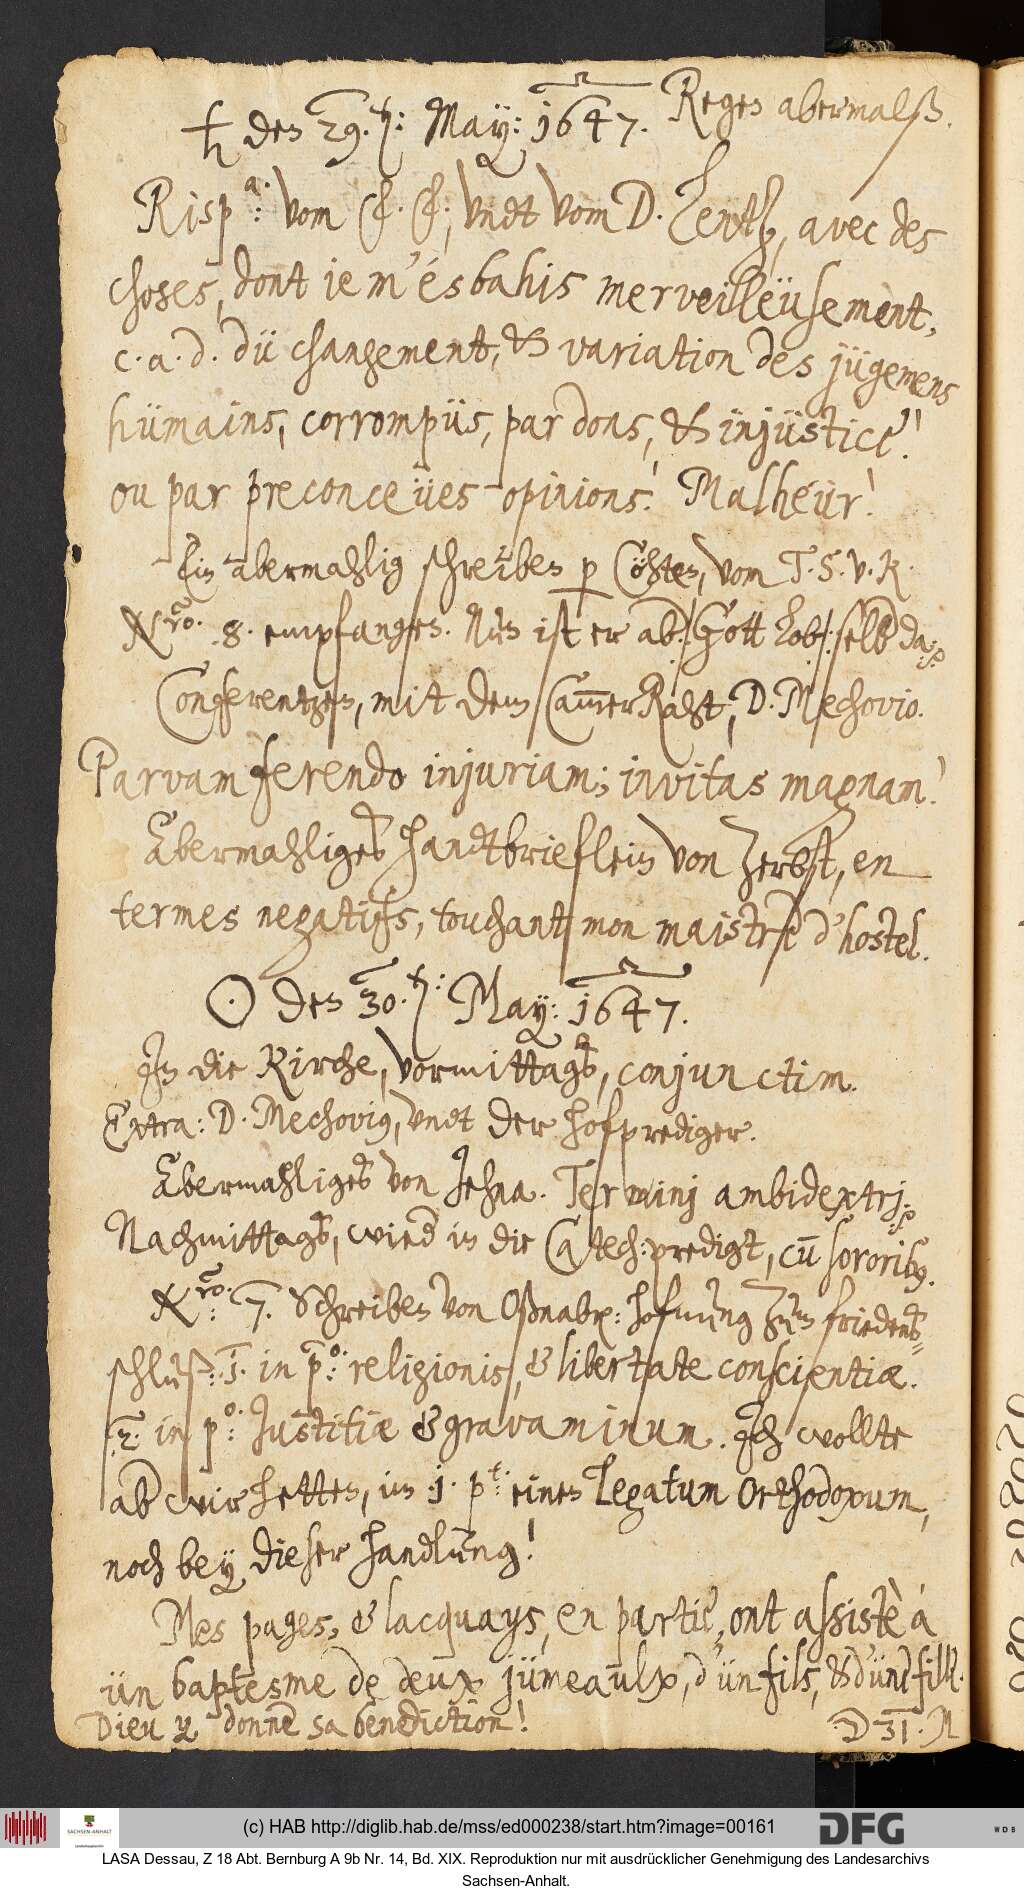 ♄ den 29.ten: May: 1647. Regen abermalß.
Risp.a: vom vndt vom D. Lentz, avec des
choses, dont ie m'ésbahis merveilleüsement,
c. a. d. dü changement, & variation des jügemens
hümains, corrompüs, par dons, & injüstice!
ou par preconceües opinions! Malheür!
Ein abermahlig schreiben per Cöhten, vom T. S. v. K.
Nro. 8. empfangen. Nun ist er ab. Gott lob. selb da:
Conferentzen, mit dem CammerRaht, D. Mechovio.
Parvam ferendo injuriam; invitas magnam!
Abermahliges handtbrieflein von Zerbst, en
termes negatifs, touchant mon maistre d'hostel.
☉ den 30.ten: May: 1647.
In die Kirche, vormittags, conjunctim.
Extra: D. Mechovius, vndt der hofprediger.
Abermahliges von Jehna. Terminj ambidextrj.
Nachmittags, wieder in die Catech: predigt, cum sororibus.
Nro: 7. Schreiben von Oßnabr: hofnung zum friedens=
schluß: 1. in po: religionis, & libertate conscientiæ.
2. in po: Justitiæ & gravaminum. Ich wollte
aber wir hetten, im 1. pt: einen Legatum Orthodoxum,
noch bey dieser handlung!
Mes pages, & lacquays, en partie, ont assistè á
ün baptesme de deux jümeaulx, d'ün fils, & d'üne fille.
Dieu y donne sa benediction!
☽ 31. M
(c) HAB http://diglib.hab.de/mss/ed000238/start.htm?image=00161
SACHSEN-ANHALT
DFG
WDB
LASA Dessau, Z 18 Abt. Bernburg A 9b Nr. 14, Bd. XIX. Reproduktion nur mit ausdrücklicher Genehmigung des Landesarchivs
Sachsen-Anhalt.